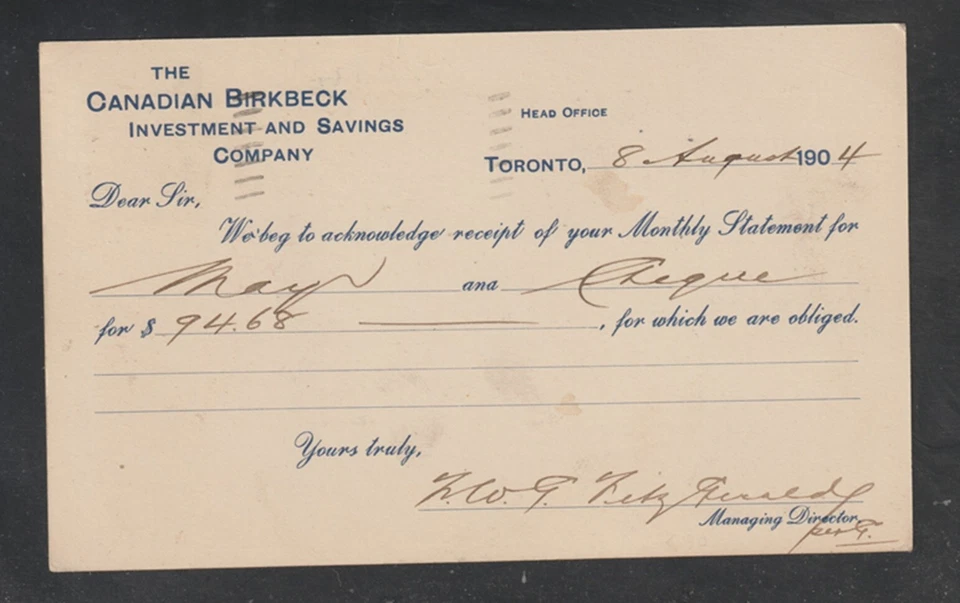 THE
CANADIAN BIRKBECK
INVESTMENT AND SAVINGS
COMPANY
HEAD OFFICE
TORONTO, 8 August 1904
Dear Sir,
We beg to acknowledge receipt of your Monthly Statement for
May and Cheque
for $ 94.68 , for which we are obliged.
Yours truly,
F. W. G. Fitz Gerald
Managing Director
per G.